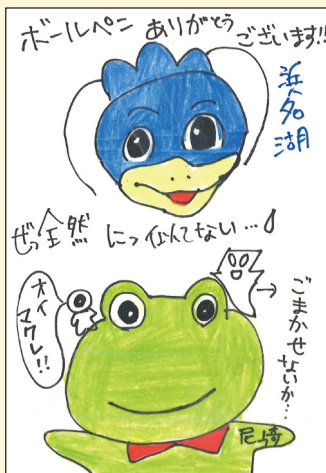 ボールペン ありがとう ございます!!
浜名湖
ぜっ全然 にっ似てない…
オイ
マクレ!!
ごまかせ
ないか…
尼崎